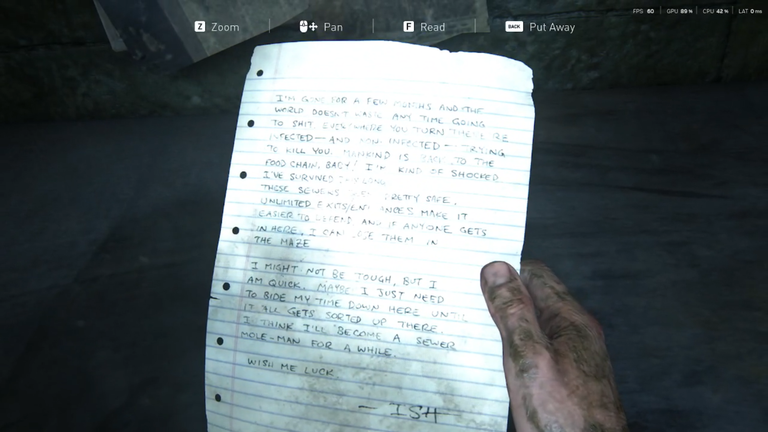 Z Zoom
Pan
F Read
BACK Put Away
FPS 60 GPU 89 % CPU 42 % LAT 0 ms
I'M GONE FOR A FEW MONTHS AND THE
WORLD DOESN'T WASTE ANY TIME GOING
TO SHIT. EVERYWHERE YOU TURN THERE'RE
INFECTED—AND NON-INFECTED—TRYING
TO KILL YOU. MANKIND IS BACK TO THE
FOOD CHAIN, BABY! I'M KIND OF SHOCKED
I'VE SURVIVED THIS LONG
THESE SEWERS PRETTY SAFE.
UNLIMITED EXITS/ENTRANCES MAKE IT
EASIER TO DEFEND AND IF ANYONE GETS
IN HERE, I CAN LOSE THEM IN
THE MAZE
I MIGHT NOT BE TOUGH, BUT I
AM QUICK. MAYBE I JUST NEED
TO BIDE MY TIME DOWN HERE UNTIL
IT ALL GETS SORTED UP THERE.
I THINK I'LL BECOME A SEWER
MOLE-MAN FOR A WHILE.
WISH ME LUCK
— ISH